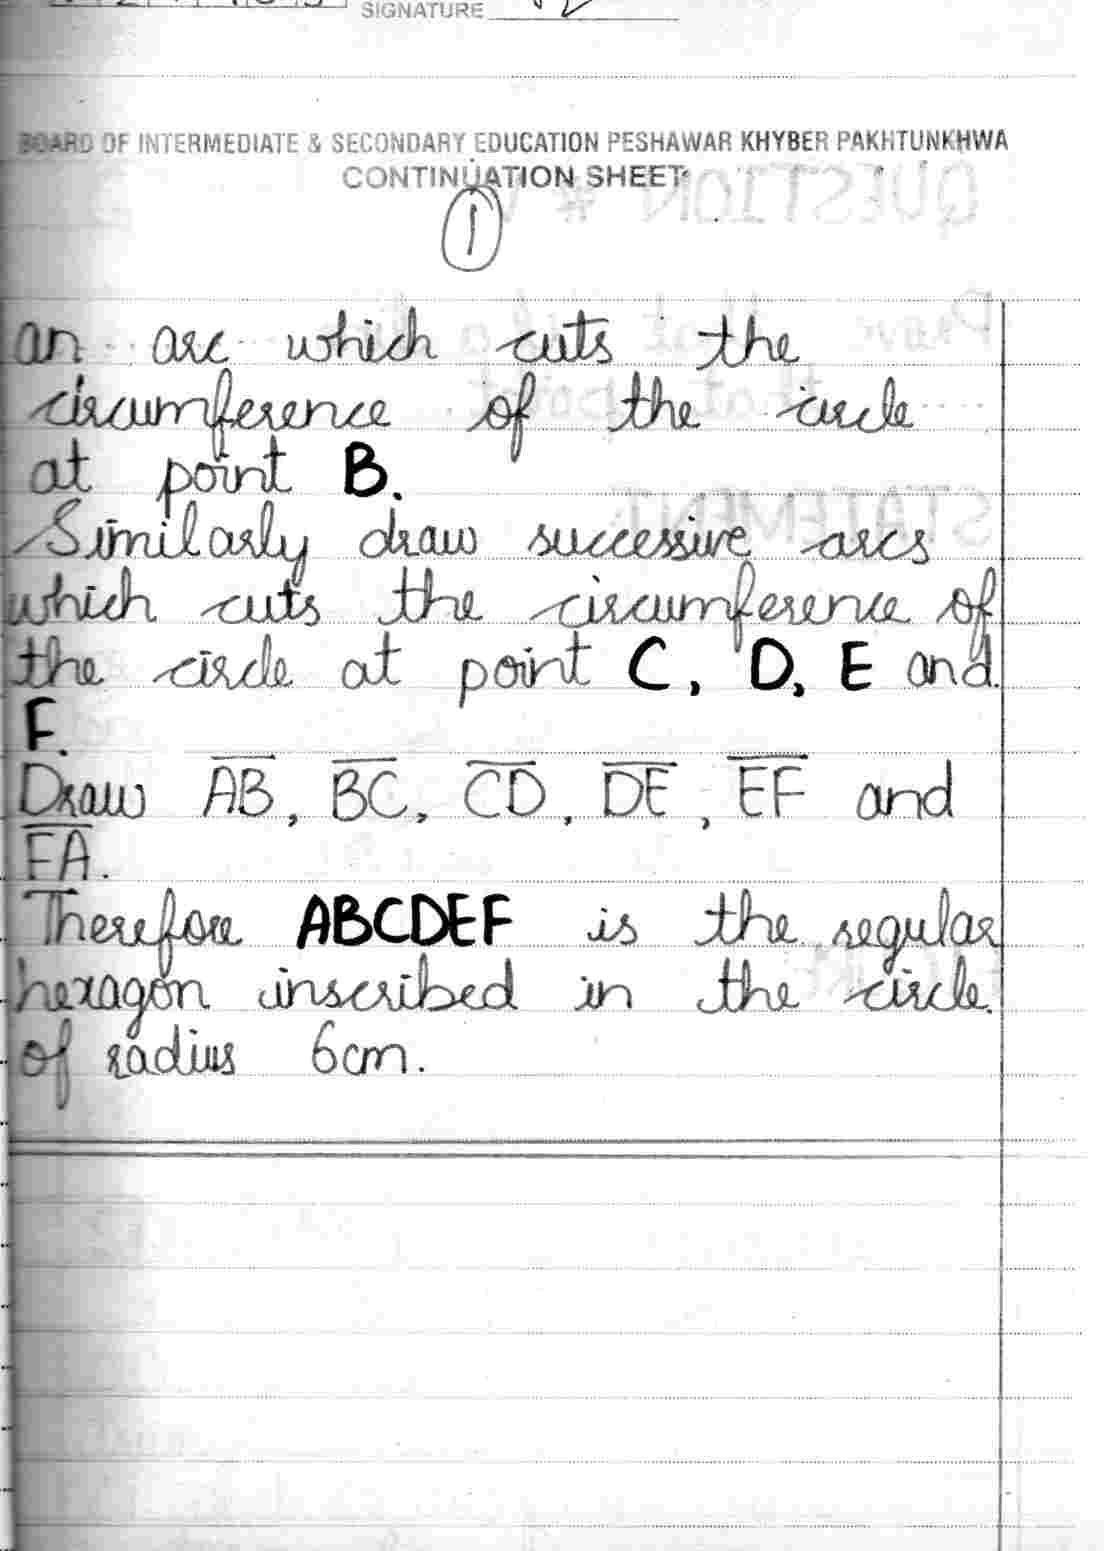 SIGNATURE
BOARD OF INTERMEDIATE & SECONDARY EDUCATION PESHAWAR KHYBER PAKHTUNKHWA
CONTINUATION SHEET
1
an arc which cuts the
circumference of the circle
at point B.
Similarly draw successive arcs
which cuts the circumference of
the circle at point C, D, E and
F.
Draw A̅B̅, B̅C̅, C̅D̅, D̅E̅, E̅F̅ and
F̅A̅.
Therefore ABCDEF is the regular
hexagon inscribed in the circle
of radius 6cm.